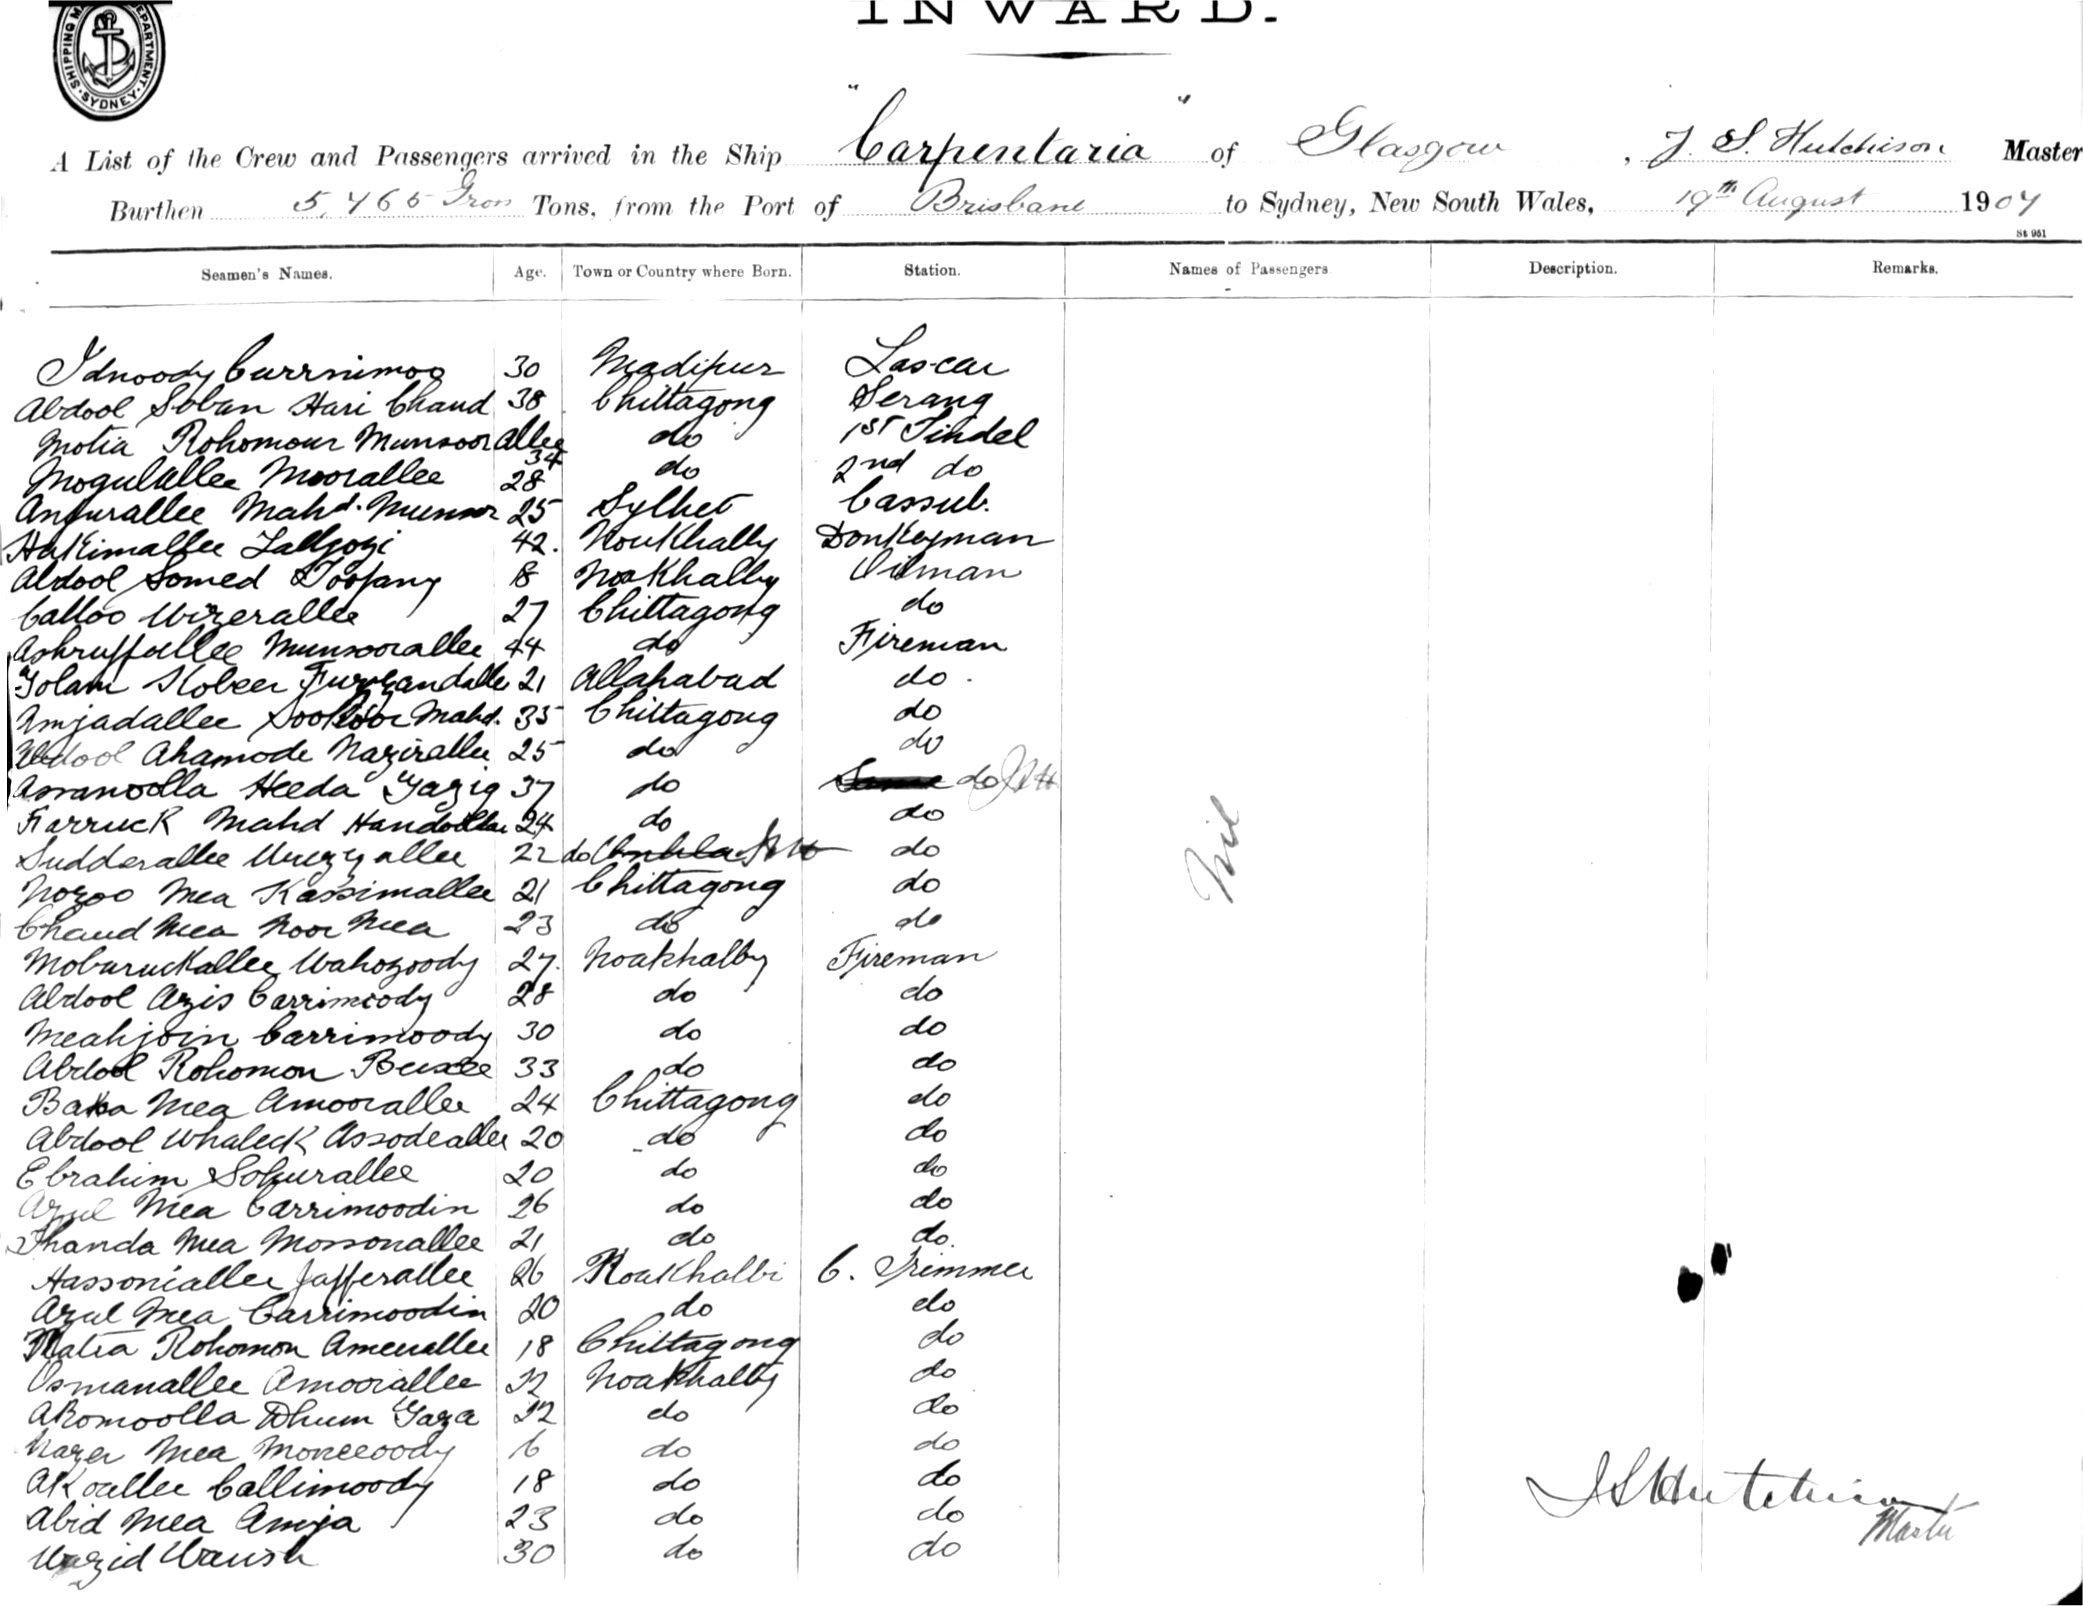 INWARD.
SHIPPING MASTER'S DEPARTMENT · SYDNEY ·
A List of the Crew and Passengers arrived in the Ship "Carpentaria" of Glasgow, J. S. Hutchison Master
Burthen 5,465 Tons, from the Port of Brisbane to Sydney, New South Wales, 19th August 1904
St 951
Seamen's Names. Age. Town or Country where Born. Station. Names of Passengers Description. Remarks.
Idnoody Currnimoo 30 Madipur Lascar
Abdool Soban Hari Chand 38 Chittagong Serang
Motia Rohomour Munsoor Allee 34 do 1st Tindel
Mogulallee Moorallee 28 do 2nd do
Anfurallee Mahd. Munsor 25 Sylhet Cassub.
Hakimallee 42. Noukhally Donkeyman
Abdool Somed Toofany 18 Noakhally Oilman
Calloo Wizerallee 27 Chittagong do
Ashruffallee Munsoorallee 44 do Fireman
Golam Kobeer 21 Allahabad do.
Amjadallee Mahd. 35 Chittagong do
Abdool Ahamode Nazirallee 25 do do
Assanoolla Heeda Gazig 37 do do JSH
Farruck Mahd Handoollas 24 do do
Sudderallee 22 do JSH do
Nozoo Mea Kassimallee 21 Chittagong do
Chand Mea Noor Mea 23 do do
Mobaruckallee Wahozoody 27. Noakhally Fireman
Abdool Azis Carrimoody 28 do do
Meahjoin Carrimoody 30 do do
Abdool Rohomon Buxee 33 do do
Baksa Mea Amoorallee 24 Chittagong do
Abdool Whaleck Assodeallee 20 do do
Ebrahim Sofurallee 20 do do
Azul Mea Carrimoodin 26 do do
Thanda Mea Mossonallee 21 do do.
Hassoniallee Jafferallee 26 Noakhalli C. Trimmer
Azul Mea Carrimoodin 20 do do
Matia Rohomon Ameerallee 18 Chittagong do
Osmanallee Amoorallee 22 Noakhally do
Akomoolla Dhum Gaza 22 do do
Nazer Mea Moneeoody do do
Akoallee Callimoody 18 do do
Abid Mea Amja 23 do do
Wazid Waush 30 do do
Nil
J S Hutchison
Master